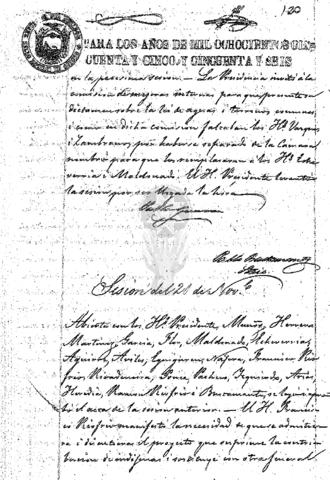 120
PARA LOS AÑOS DE MIL OCHOCIENTOS CIN
CUENTA Y CINCO, Y CINCUENTA Y SEIS
en la proxima sesion. — La Presidencia invitó á la
comision de mejoras internas para que presente su
dictamen sobre la lei de aguas i terrenos comunes
i como en dicha comision faltaban los HH. Vargas
i Zambrano, por haberse separado de la Camara
nombró para que los remplazaran á los HH. Eche
verria i Maldonado. El H. Presidente levantó
la sesion por ser llegada la hora
Pablo Bustamante
Srio.
Sesion del 21 de Novbe.
Abierta con los HH. Presidente, Muñoz, Herrera
Martinez, Garcia, Flor, Maldonado, Echeverria,
Aguirre, Aviles, Eguiguren, Najera, Francisco Rio
frio, Rivadeneira, Ponce, Pacheco, Izquierdo, Arias,
Heredia, Ramon Riofrio i Bustamante, se leyó i apro
bó el acta de la sesion anterior. — El H. Francis
co Riofrio manifestó la necesidad de que se admitiera
i discutiera el proyecto que suprime la contri
bucion de indijenas i